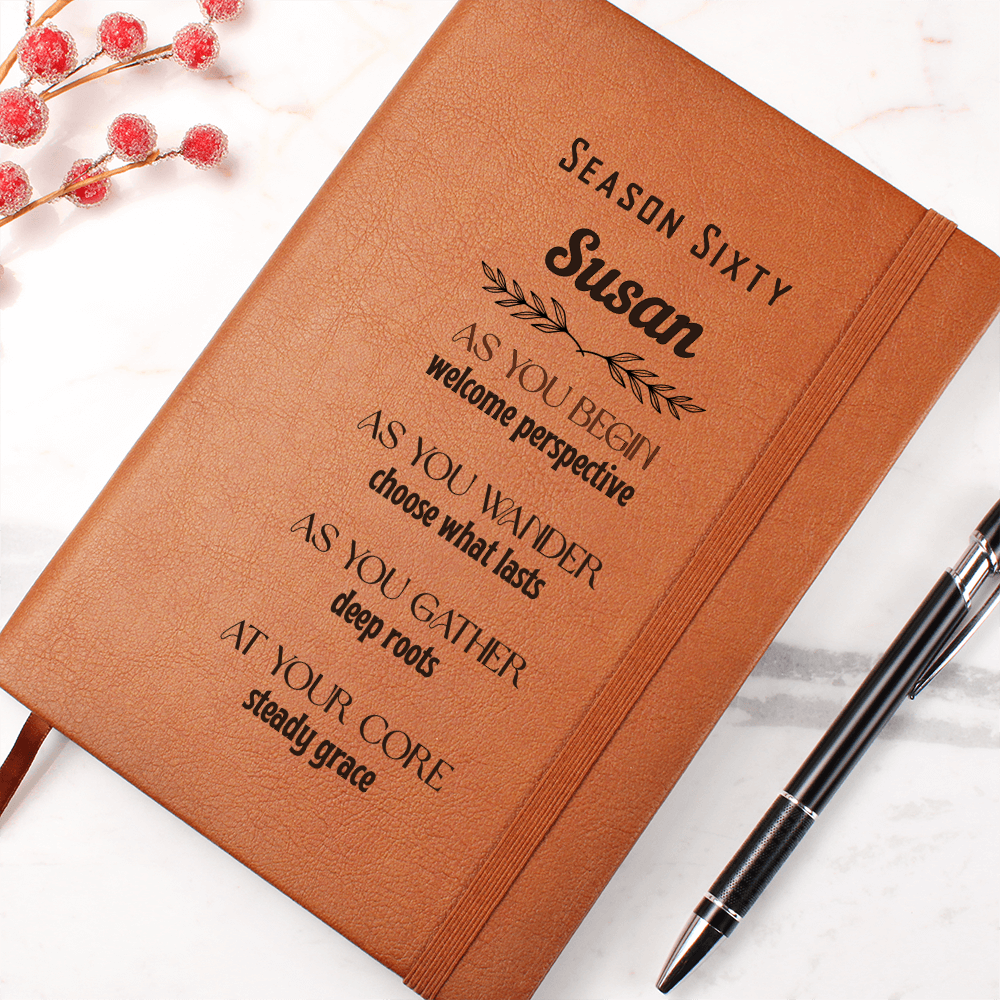 Season Sixty
Susan
AS YOU BEGIN
welcome perspective
AS YOU WANDER
choose what lasts
AS YOU GATHER
deep roots
AT YOUR CORE
steady grace